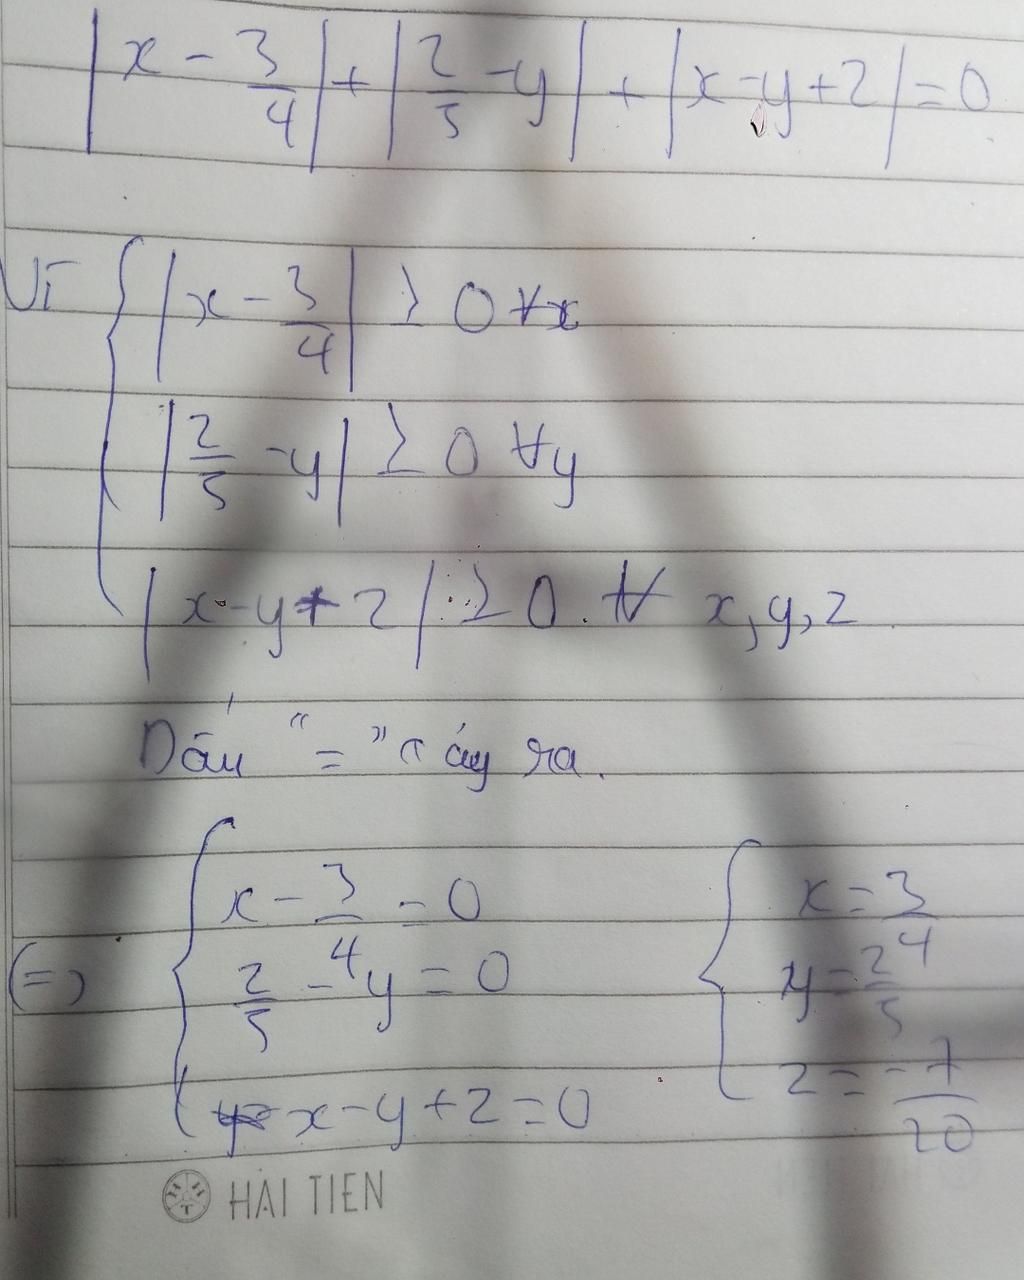 |x - 3/4| + |2/5 - y| + |x - y + z| = 0
Vì { |x - 3/4| ≥ 0 ∀x
|2/5 - y| ≥ 0 ∀y
|x - y + z| ≥ 0 ∀ x, y, z
Dấu "=" xảy ra.
(=) { x - 3/4 = 0 { x = 3/4
2/5 - y = 0 y = 2/5
x - y + z = 0 z = -7/20
HẢI TIẾN